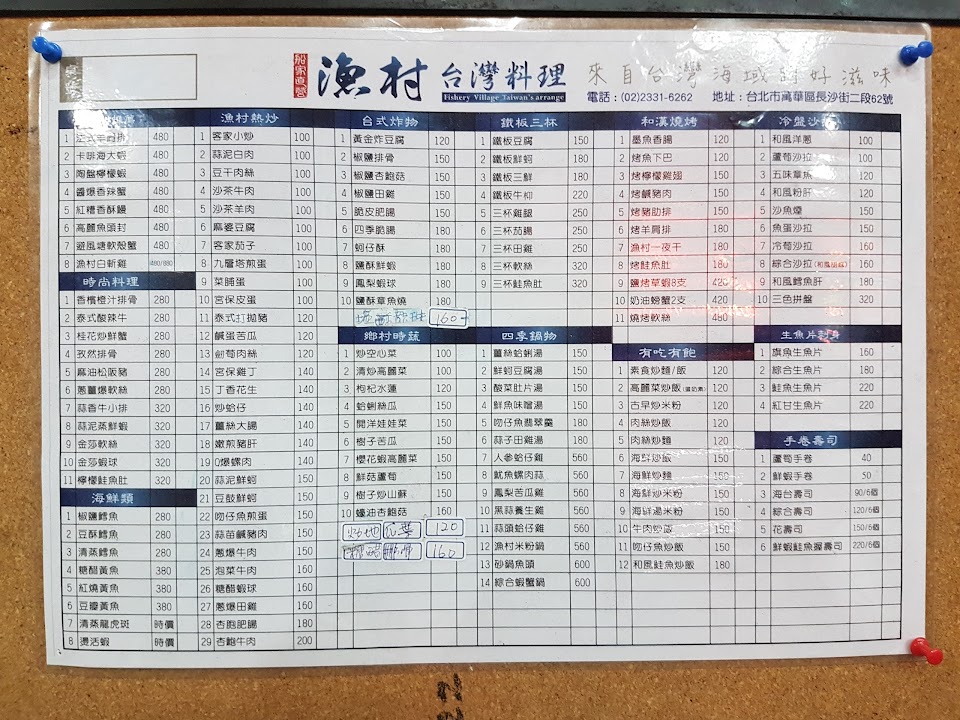 桌號
船家直營 漁村 台灣料理 來自台灣海域的好滋味
Fishery Village Taiwan's arrange
電話：(02)2331-6262 地址：台北市萬華區長沙街二段62號
1 法式羊肩排 480
2 卡啡海大蝦 480
3 陶盤檸檬蝦 480
4 醬爆香辣蟹 480
5 紅糟香酥鰻 480
6 高麗魚頭封 480
7 避風塘軟殼蟹 480
8 漁村白斬雞 480/880
時尚料理
1 香檳橙汁排骨 280
2 泰式酸辣牛 280
3 桂花炒鮮蟹 280
4 孜然排骨 280
5 麻油松阪豬 280
6 蔥薑爆軟絲 280
7 蒜香牛小排 320
8 蒜泥蒸鮮蝦 320
9 金莎軟絲 320
10 金莎蝦球 320
11 檸檬鮭魚肚 320
海鮮類
1 椒鹽鱈魚 280
2 豆酥鱈魚 280
3 清蒸鱈魚 280
4 糖醋黃魚 380
5 紅燒黃魚 380
6 豆瓣黃魚 380
7 清蒸龍虎斑 時價
8 燙活蝦 時價
漁村熱炒
1 客家小炒 100
2 蒜泥白肉 100
3 豆干肉絲 100
4 沙茶牛肉 100
5 沙茶羊肉 100
6 麻婆豆腐 100
7 客家茄子 100
8 九層塔煎蛋 100
9 菜脯蛋 100
10 宮保皮蛋 100
11 泰式打拋豬 120
12 鹹蛋苦瓜 120
13 劍筍肉絲 120
14 宮保雞丁 140
15 丁香花生 140
16 炒蛤仔 140
17 薑絲大腸 140
18 嫩煎豬肝 140
19 Q爆螺肉 140
20 蒜泥鮮蚵 150
21 豆鼓鮮蚵 150
22 吻仔魚煎蛋 150
23 蒜苗鹹豬肉 150
24 蔥爆牛肉 150
25 泡菜牛肉 160
26 糖醋蝦 160
27 蔥爆田雞 160
28 杏胞肥腸 180
29 杏鮑牛肉 200
台式炸物
1 黃金炸豆腐 120
2 椒鹽排骨 150
3 椒鹽杏鮑菇 150
4 椒鹽田雞 150
5 脆皮肥腸 150
6 四季脆腸 180
7 蚵仔酥 180
8 鹽酥鮮蝦 180
9 鳳梨蝦球 180
10 鹽酥章魚燒 180
160
鄉村時蔬
1 炒空心菜 100
2 清炒高麗菜 100
3 枸杞水蓮 120
4 蛤蜊絲瓜 150
5 開洋娃娃菜 150
6 樹子苦瓜 150
7 櫻花蝦高麗菜 150
8 鮮菇蘆筍 150
9 樹子炒山蘇 150
10 蠔油杏鮑菇 160
120
160
鐵板三杯
1 鐵板豆腐 150
2 鐵板鮮蚵 180
3 鐵板三鮮 180
4 鐵板牛柳 220
5 三杯雞腿 250
6 三杯茄腸 250
7 三杯田雞 250
8 三杯軟絲 320
9 三杯鮭魚肚 320
四季鍋物
1 薑絲蛤蜊湯 150
2 鮮蚵豆腐湯 150
3 酸菜肚片湯 150
4 鮮魚味噌湯 150
5 吻仔魚翡翠羹 180
6 蒜子田雞湯 180
7 人參蛤仔雞 560
8 魷魚螺肉蒜 560
9 鳳梨苦瓜雞 560
10 黑蒜養生雞 560
11 蒜頭蛤仔雞 560
12 漁村米粉鍋 560
13 砂鍋魚頭 600
14 綜合蝦蟹鍋 600
和漢燒烤
1 墨魚香腸 120
2 烤魚下巴 120
3 烤檸檬雞翅 150
4 烤鹹豬肉 150
5 烤豬肋排 150
6 烤羊肩排 180
7 漁村一夜干 180
8 烤鮭魚肚 180
9 鹽烤草蝦8支 420
10 奶油螃蟹2支 420
11 燒烤軟絲 480
有吃有飽
1 素食炒麵/飯 120
2 高麗菜炒飯(蛋奶素) 120
3 古早炒米粉 120
4 肉絲炒飯 120
5 肉絲炒麵 120
6 海鮮炒飯 150
7 海鮮炒麵 150
8 海鮮炒米粉 150
9 海鮮湯米粉 150
10 牛肉炒飯 150
11 吻仔魚炒飯 150
12 和風鮭魚炒飯 180
1 和風洋蔥 100
2 蘆筍沙拉 100
3 五味章魚 120
4 和風粉肝 120
5 沙魚煙 150
6 魚蛋沙拉 150
7 冷筍沙拉 160
8 綜合沙拉 160
9 和風鱈魚肝 180
10 三色拼盤 320
生魚片刺身
1 旗魚生魚片 160
2 綜合生魚片 180
3 鮭魚生魚片 220
4 紅甘生魚片 220
手卷壽司
1 蘆筍手卷 40
2 鮮蝦手卷 50
3 海台壽司 90/6個
4 綜合壽司 120/6個
5 花壽司 150/6個
6 鮮蝦鮭魚握壽司 220/6個